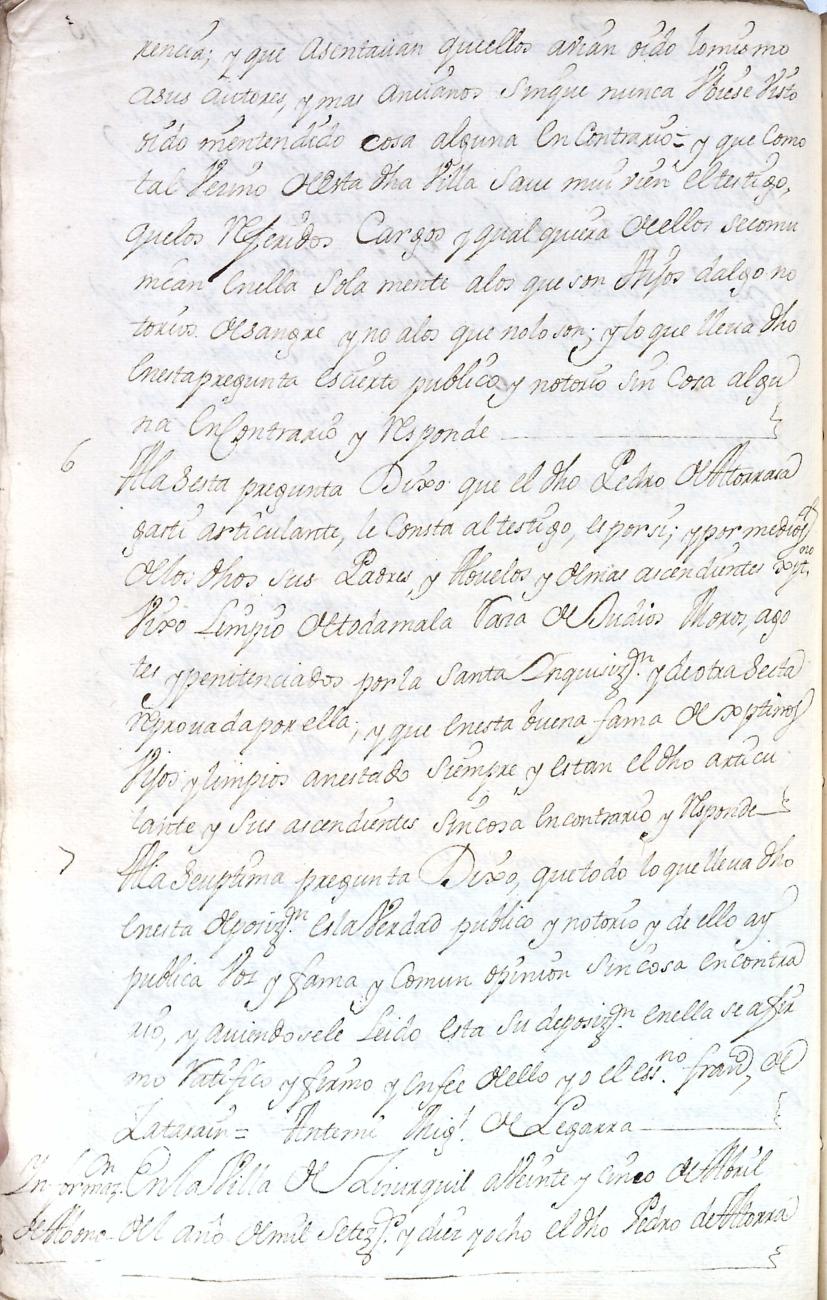 rencia; y que asentauan quellos auian oido lomismo
asus autores, y mas ancianos sinque nunca Vbiese Visto
oido nientendido cosa alguna En Contrario = y que Como
tal Vecino de esta dha Villa saue mui vien el testigo,
quelos Referidos Cargos y qual quiera de ellos secomu
nican enella sola mente alos que son Hijos dalgo no
torios de sangre y no alos que nolo son; y lo que lleua dho
Enesta pregunta es cierto publico y notorio sin Cosa algu
na En Contrario y Responde
6 Ala Sesta pregunta Dixo que el dho Pedro de Atorrasa
gasti articulante, le Consta al testigo, es por si; y por medio
de los dhos sus Padres, y Abuelos y demas ascendientes xpt.no
Vixo Limpio de toda mala Raza de Judios Moros, ago
tes y penitenciados por la Santa Inquisizon. y de otra Secta
reprouada por ella, y que enesta buena fama de xptianos
Vijos y limpios anestado siempre y estan el dho articu
lante y sus ascendientes sin cosa en contrario y Responde
7 Ala Septima pregunta Dixo, que todo lo que lleua dho
Enesta deposizon. es la Verdad publico y notorio y de ello ay
publica Voz y fama y Comun opinion sin cosa en contra
rio, y auiendosele Leido esta su deposizon. enella se afir
mo Ratifico y firmo y en fee de ello yo el essno. Franco de
Zatarain = Antemi Migl. de Legarra
Informazon En la Villa de Lizurquil a Veinte y cinco de Abril
de Abono del año de mil setezos. y diez y ocho el dho Pedro de Atorra